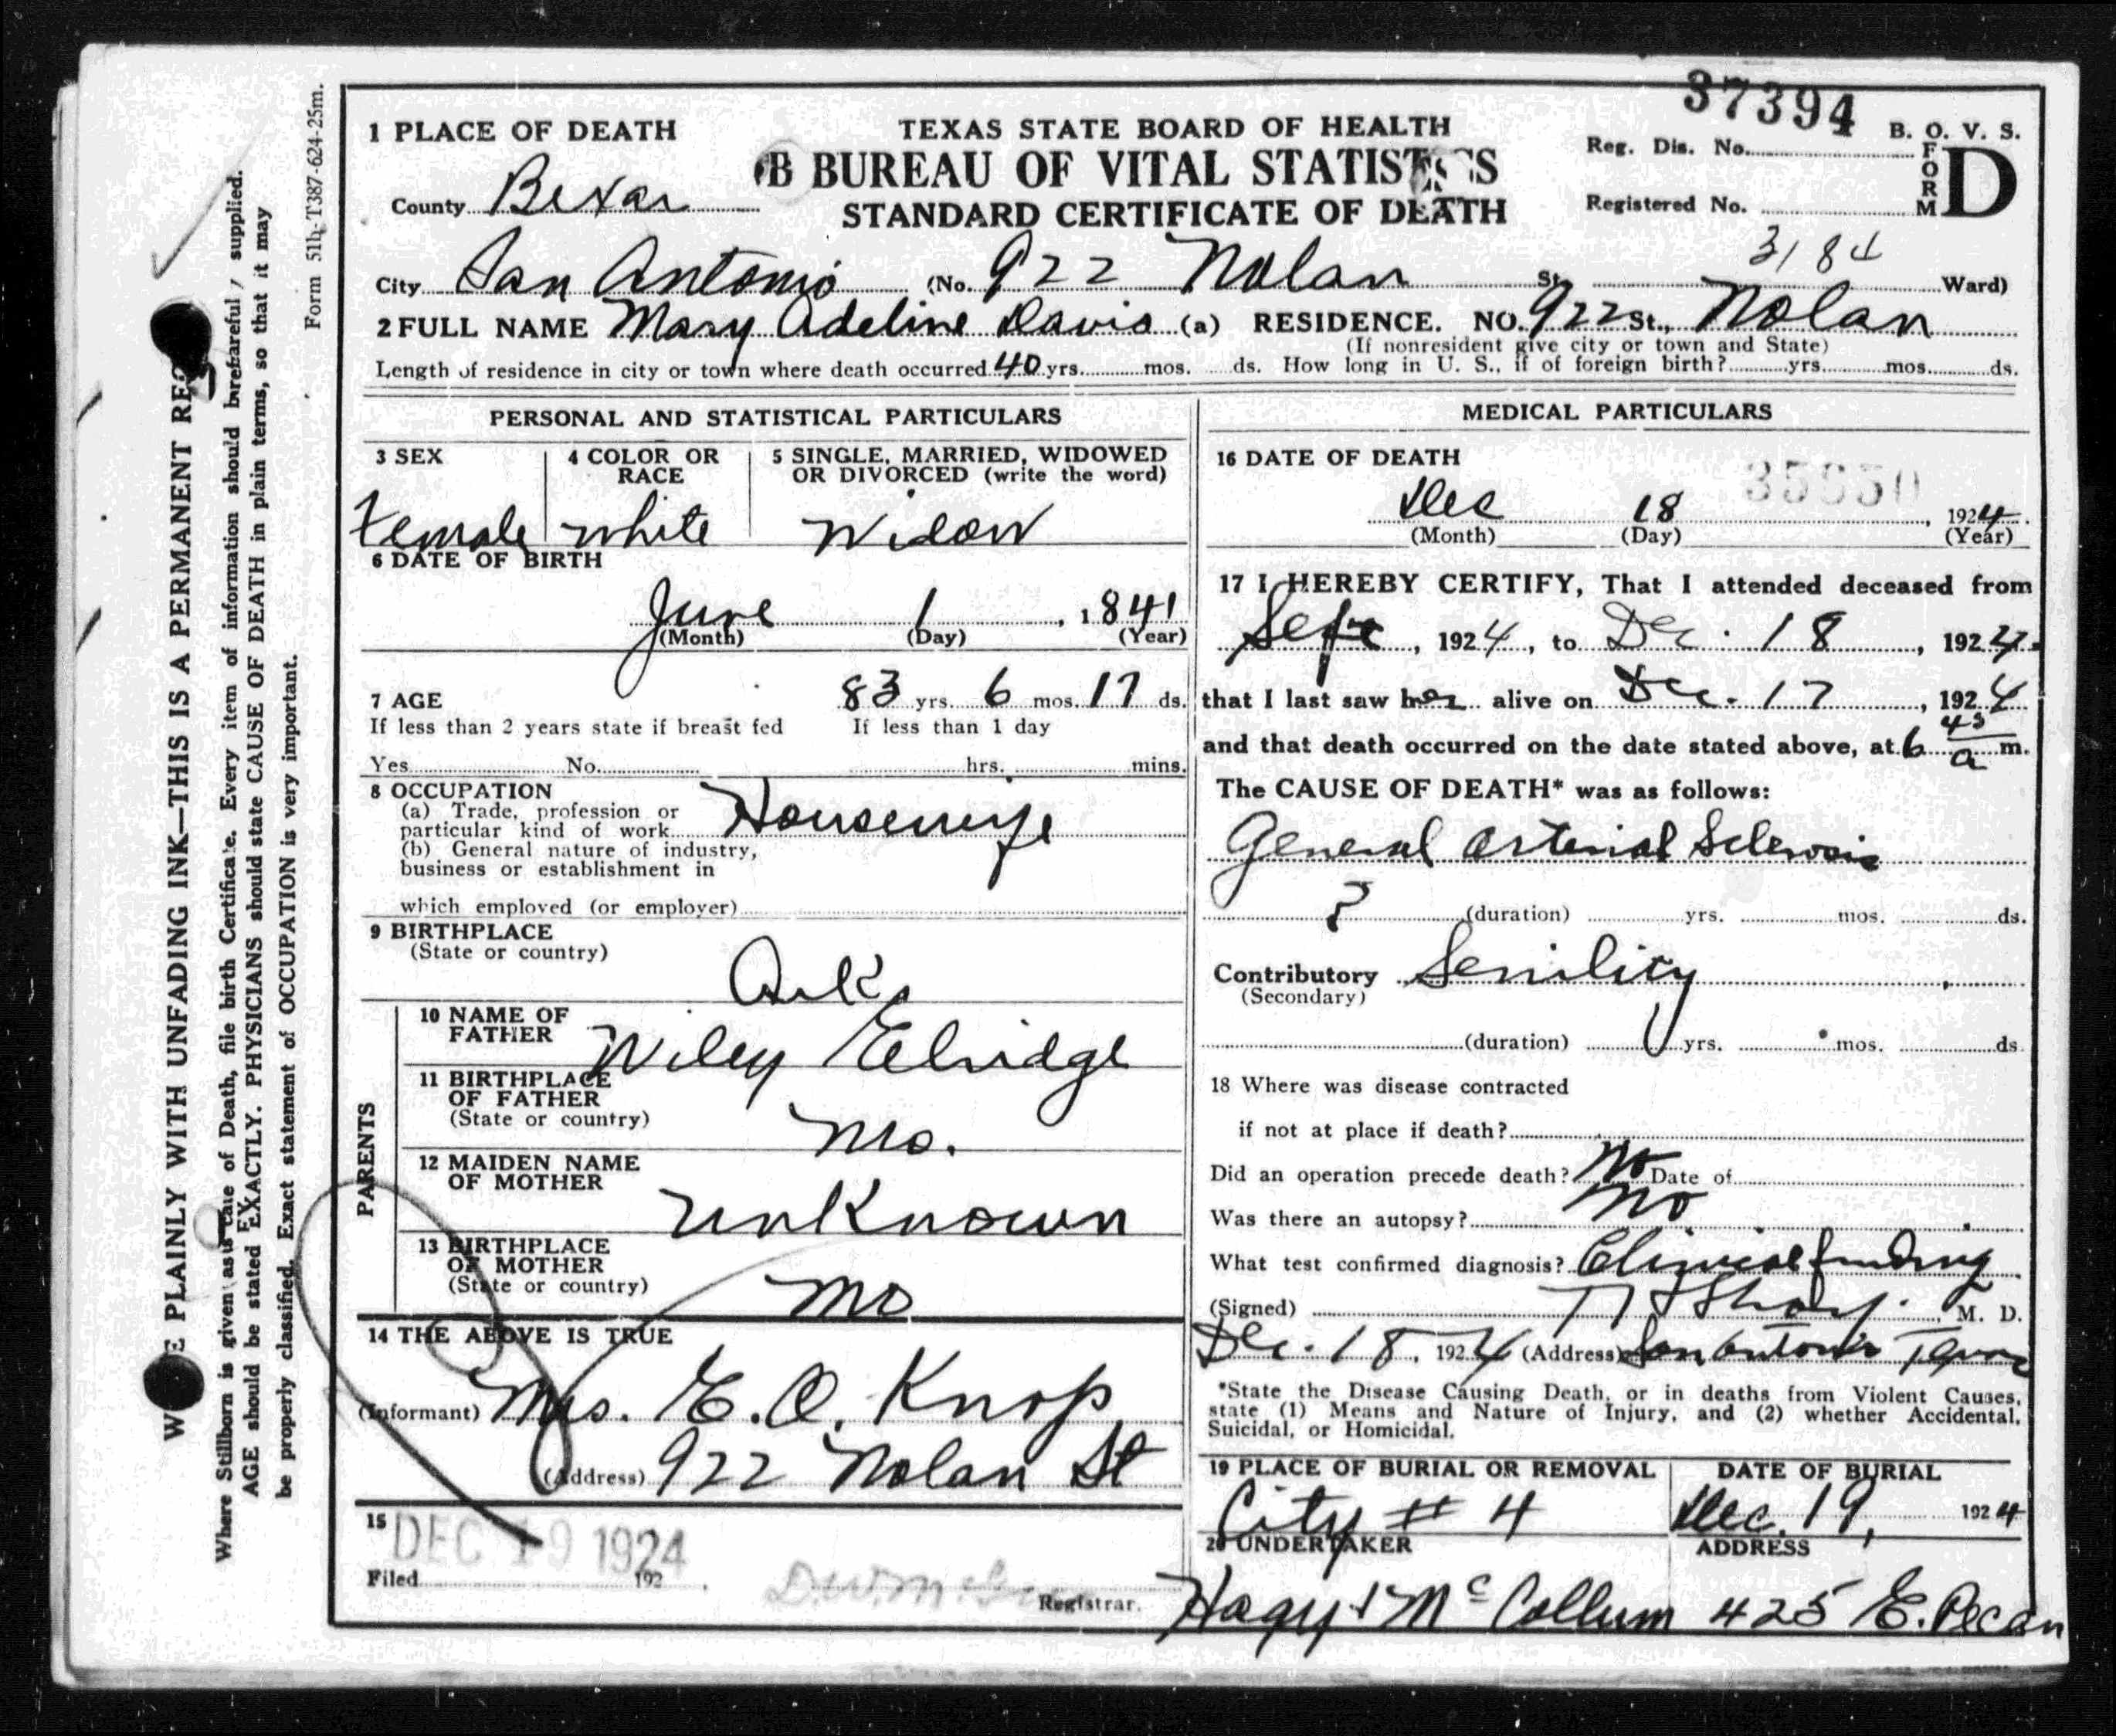 37394
1 PLACE OF DEATH
TEXAS STATE BOARD OF HEALTH
B BUREAU OF VITAL STATISTICS
STANDARD CERTIFICATE OF DEATH
Reg. Dis. No.
B. O. V. S.
FORM D
Registered No.
3184
County Bexar
City San Antonio (No. 922 Nolan St. Ward)
2 FULL NAME Mary Adeline Davis (a) RESIDENCE. NO. 922 St., Nolan
(If nonresident give city or town and State)
Length of residence in city or town where death occurred 40 yrs. mos. ds. How long in U. S., if of foreign birth? yrs. mos. ds.
PERSONAL AND STATISTICAL PARTICULARS
3 SEX
Female
4 COLOR OR RACE
White
5 SINGLE, MARRIED, WIDOWED
OR DIVORCED (write the word)
Widow
6 DATE OF BIRTH
June 1, 1841
(Month) (Day) (Year)
7 AGE 83 yrs. 6 mos. 17 ds.
If less than 2 years state if breast fed If less than 1 day
Yes No hrs. mins.
8 OCCUPATION
(a) Trade, profession or
particular kind of work Housewife
(b) General nature of industry,
business or establishment in
which employed (or employer)
9 BIRTHPLACE
(State or country)
Ark.
PARENTS
10 NAME OF
FATHER Wiley Elridge
11 BIRTHPLACE
OF FATHER
(State or country) Mo.
12 MAIDEN NAME
OF MOTHER Unknown
13 BIRTHPLACE
OF MOTHER
(State or country) Mo
14 THE ABOVE IS TRUE
(Informant) Mrs. E. O. Knop
(Address) 922 Nolan St
15 DEC 19 1924
Filed 192
Registrar.
MEDICAL PARTICULARS
16 DATE OF DEATH
Dec 18, 1924
(Month) (Day) (Year)
17 I HEREBY CERTIFY, That I attended deceased from
Sept, 1924, to Dec. 18, 1924.
that I last saw her alive on Dec. 17, 1924
and that death occurred on the date stated above, at 6 45 a m.
The CAUSE OF DEATH* was as follows:
General Arterial Sclerosis
? (duration) yrs. mos. ds.
Contributory Senility
(Secondary)
(duration) yrs. mos. ds.
18 Where was disease contracted
if not at place if death?
Did an operation precede death? No Date of
Was there an autopsy? No
What test confirmed diagnosis? Clinical finding
(Signed) Sharp. M. D.
Dec. 18, 1924 (Address) San Antonio Texas
*State the Disease Causing Death, or in deaths from Violent Causes,
state (1) Means and Nature of Injury, and (2) whether Accidental,
Suicidal, or Homicidal.
19 PLACE OF BURIAL OR REMOVAL
City # 4
DATE OF BURIAL
Dec. 19, 1924
20 UNDERTAKER
Hagy & McCollum
ADDRESS
425 E. Pecan
PLAINLY WITH UNFADING INK—THIS IS A PERMANENT
Where Stillborn is given as cause of Death, file birth Certificate. Every item of information should be careful / supplied.
AGE should be stated EXACTLY. PHYSICIANS should state CAUSE OF DEATH in plain terms, so that it may
be properly classified. Exact statement of OCCUPATION is very important.
Form 51b-T387-624-25m.